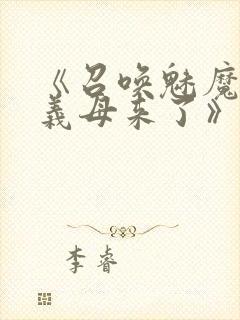 《召唤魅魔
義母来了》
李睿